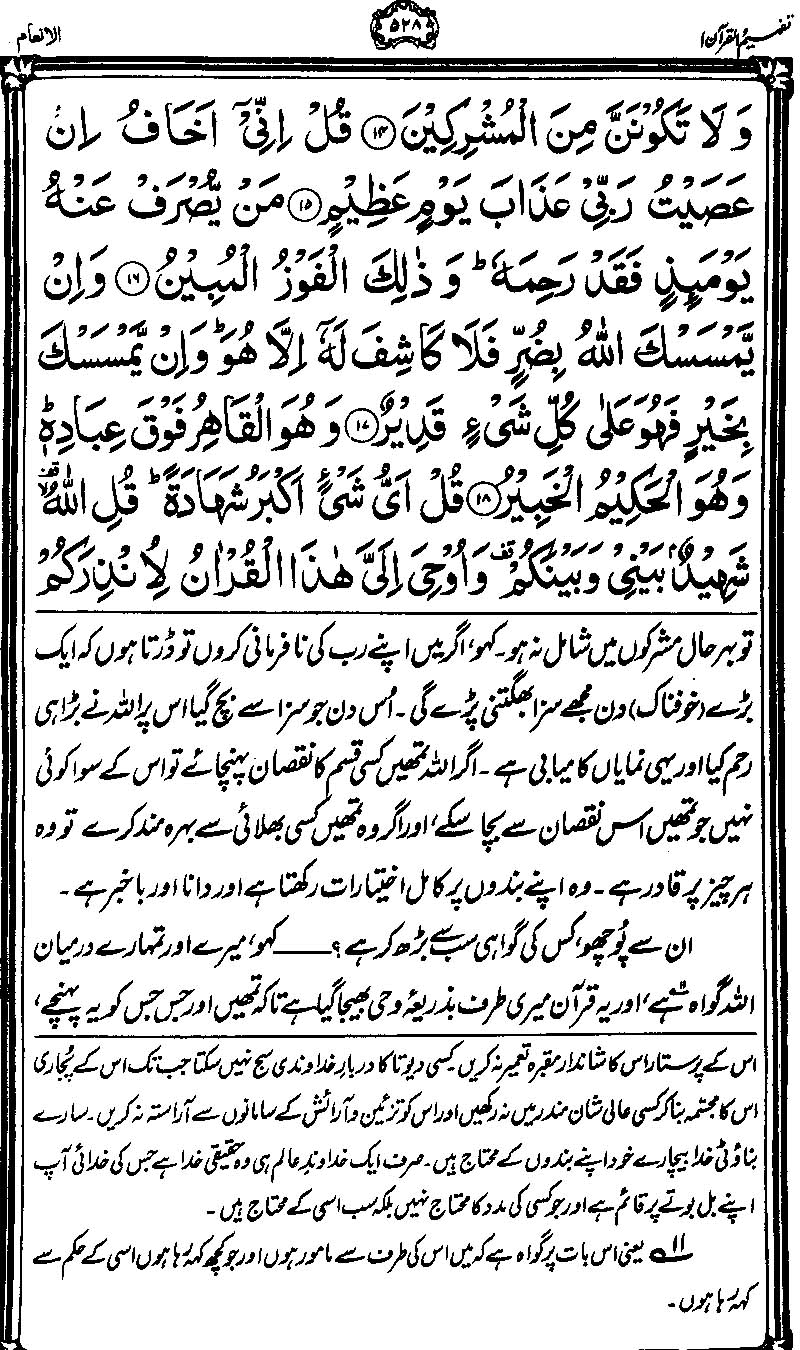 تفہیم القرآن ۱
۵۲۸
الانعام
وَلَا تَكُوْنَنَّ مِنَ الْمُشْرِكِيْنَ ﴿۱۴﴾ قُلْ اِنِّيْٓ اَخَافُ اِنْ
عَصَيْتُ رَبِّيْ عَذَابَ يَوْمٍ عَظِيْمٍ ﴿۱۵﴾ مَنْ يُّصْرَفْ عَنْهُ
يَوْمَىِٕذٍ فَقَدْ رَحِمَهٗ ؕ وَ ذٰلِكَ الْفَوْزُ الْمُبِيْنُ ﴿۱۶﴾ وَاِنْ
يَّمْسَسْكَ اللّٰهُ بِضُرٍّ فَلَا كَاشِفَ لَهٗٓ اِلَّا هُوَ ؕ وَاِنْ يَّمْسَسْكَ
بِخَيْرٍ فَهُوَ عَلٰى كُلِّ شَىْءٍ قَدِيْرٌ ﴿۱۷﴾ وَهُوَ الْقَاهِرُ فَوْقَ عِبَادِهٖ ؕ
وَهُوَ الْحَكِيْمُ الْخَبِيْرُ ﴿۱۸﴾ قُلْ اَىُّ شَىْءٍ اَكْبَرُ شَهَادَةً ؕ قُلِ اللّٰهُ
شَهِيْدٌۢ بَيْنِيْ وَبَيْنَكُمْ وَاُوْحِىَ اِلَىَّ هٰذَا الْقُرْاٰنُ لِاُنْذِرَكُمْ
تو بہر حال مشرکوں میں شامل نہ ہو۔ کہو، اگر میں اپنے رب کی نافرمانی کروں تو ڈرتا ہوں کہ ایک
بڑے (خوفناک) دن مجھے سزا بھگتنی پڑے گی۔ اُس دن جو سزا سے بچ گیا اس پر اللہ نے بڑا ہی
رحم کیا اور یہی نمایاں کامیابی ہے۔ اگر اللہ تمھیں کسی قسم کا نقصان پہنچائے تو اس کے سوا کوئی
نہیں جو تمھیں اس نقصان سے بچا سکے، اور اگر وہ تمھیں کسی بھلائی سے بہرہ مند کرے تو وہ
ہر چیز پر قادر ہے۔ وہ اپنے بندوں پر کامل اختیارات رکھتا ہے اور دانا اور باخبر ہے۔
ان سے پُوچھو، کس کی گواہی سب سے بڑھ کر ہے؟ —— کہو، میرے اور تمہارے درمیان
اللہ گواہ ہے، اور یہ قرآن میری طرف بذریعۂ وحی بھیجا گیا ہے تاکہ تمھیں اور جس جس کو یہ پہنچے،
اس کے پرستار اس کا شاندار مقبرہ تعمیر نہ کریں۔ کسی دیوتا کا دربارِ خداوندی سج نہیں سکتا جب تک اس کے پُجاری
اس کا مجسمہ بنا کر کسی عالی شان مندر میں نہ رکھیں اور اس کو تزئین و آرائش کے سامانوں سے آراستہ نہ کریں۔ سارے
بناؤٹی خدا بیچارے خود اپنے بندوں کے محتاج ہیں۔ صرف ایک خداوندِ عالم ہی وہ حقیقی خدا ہے جس کی خدائی آپ
اپنے بل بوتے پر قائم ہے اور جو کسی کی مدد کا محتاج نہیں بلکہ سب اسی کے محتاج ہیں۔
۱۱ یعنی اس بات پر گواہ ہے کہ میں اس کی طرف سے مامور ہوں اور جو کچھ کہہ رہا ہوں اسی کے حکم سے
کہہ رہا ہوں۔